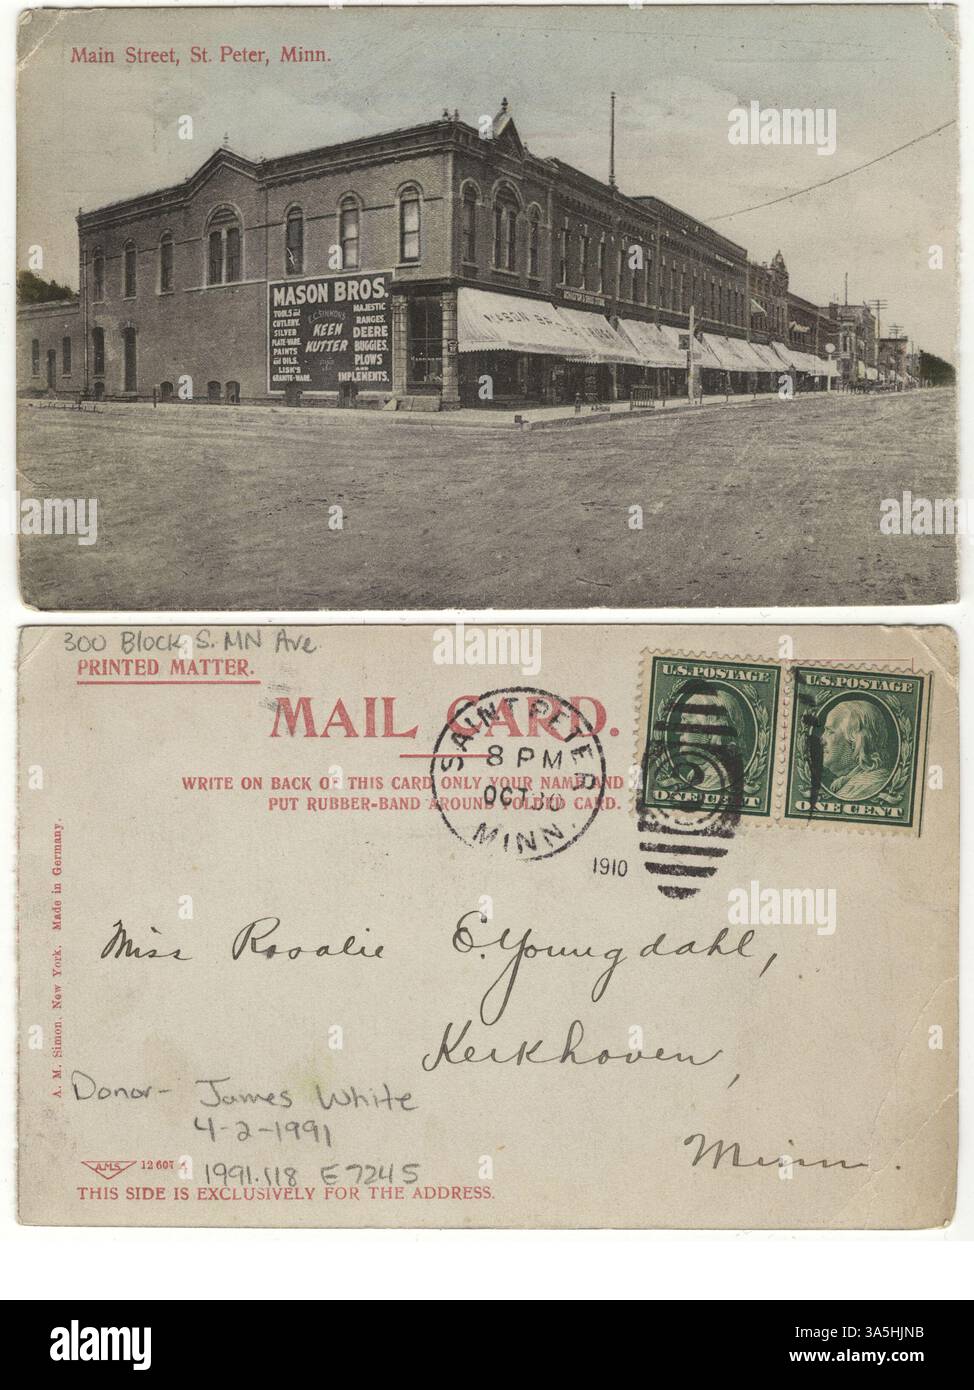 Main Street, St. Peter, Minn.
MASON BROS.
TOOLS and
CUTLERY.
SILVER
PLATE-WARE.
PAINTS
and OILS.
LISK'S
GRANITE-WARE.
E.C. SIMMONS
KEEN
KUTTER
MAJESTIC
RANGES.
DEERE
BUGGIES,
PLOWS
AND
IMPLEMENTS.
MASON BROS
300 Block S. MN Ave.
PRINTED MATTER.
MAIL CARD.
WRITE ON BACK OF THIS CARD ONLY YOUR NAME AND
PUT RUBBER-BAND AROUND FOLDED CARD.
SAINT PETER
8 PM
OCT 30
MINN.
1910
U.S. POSTAGE
ONE CENT
U.S. POSTAGE
ONE CENT
A. M. Simon, New York. Made in Germany.
Miss Rosalie E. Youngdahl,
Kerkhoven,
Minn.
Donor- James White
4-2-1991
1991.118 E7245
A.M.S. 12607
THIS SIDE IS EXCLUSIVELY FOR THE ADDRESS.
alamy
alamy
Image ID: 3A5HJNB
www.alamy.com